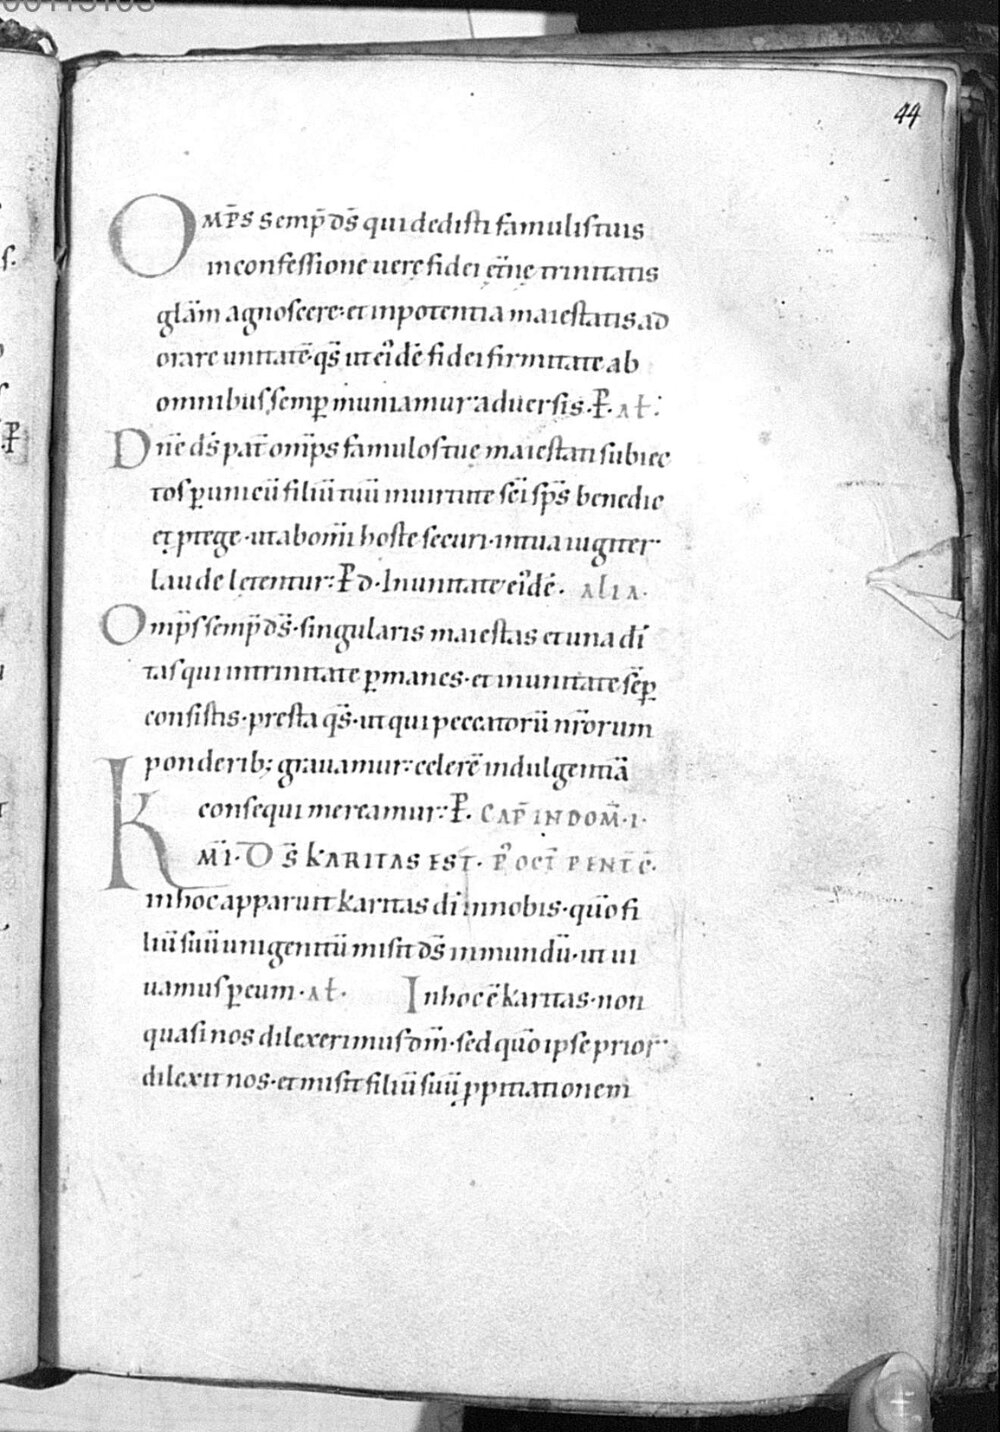 44
OMP̄S Semp̄ ds̄ qui dedisti famulis tuis
in confessione uerę fidei et̄nę trinitatis
glām agnoscere· et in potentia maiestatis ad
orare unitatē· qs̄ ut ei'dē fidei firmitate ab
omnibus semp muniamur aduersis. P. AŁ:
Dn̄e ds̄ pat̄ om̄ps famulos tuę maiestati subiec
tos p unicū filiū tuū in uirtute sc̄i sp̄s benedic
et ptege· ut ab om̄i hoste securi· in tua iugiter
laude lętentur: P d· In unitate ei'dē. ALIA.
Omp̄s semp̄ ds̄· singularis maiestas et una di
tas qui in trinitate pmanes· et in unitate sēp
consistis· presta qs̄· ut qui peccatorū nr̄orum
ponderib; grauamur: celerē indulgentiā
consequi mereamur: P. CAP̄ IN DOM̄· I·
KM̄I· DS̄ KARITAS EST. P' OCT̄ PENT̄C̄·
in hoc apparuit karitas di in nobis· qūo fi
liū suū unigenitū misit ds̄ in mundū· ut ui
uamus p eum· AŁ· In hoc ē karitas· non
quasi nos dilexerimus dm̄· sed qūo ipse prior
dilexit nos· et misit filiū suū ppitiationem